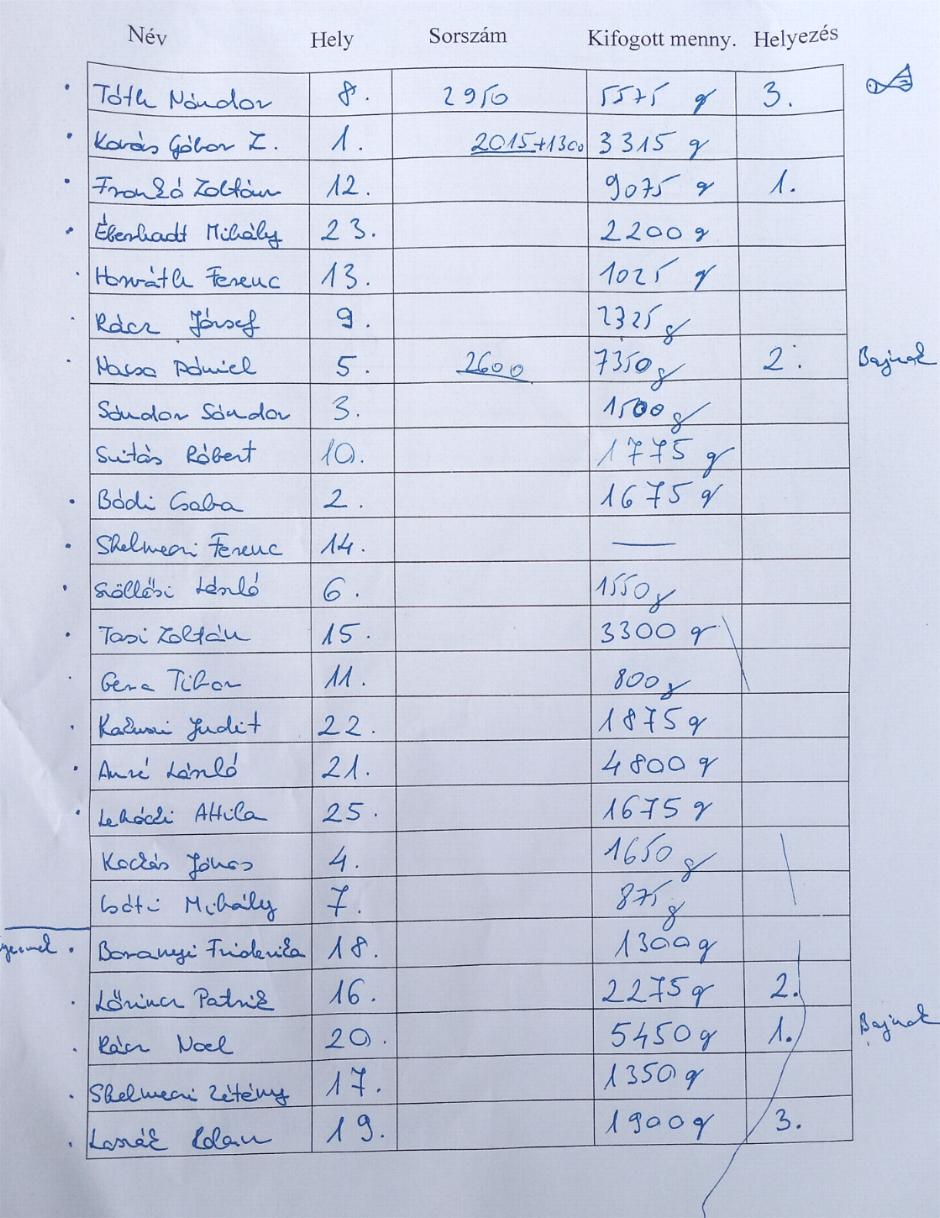 Név Hely Sorszám Kifogott menny. Helyezés
Tóth Nándor 8. 2950 5575 g 3.
Kovás Gábor Z. 1. 2015+1300 3315 g
Frankó Zoltán 12. 9075 g 1.
Éberhadt Mihály 23. 2200 g
Horváth Ferenc 13. 1025 g
Rácz József 9. 2325 g
Macsa Dániel 5. 2600 7350 g 2. Bajnok
Sándor Sándor 3. 1500 g
Róbert 10. 1775 g
Bódi Csaba 2. 1675 g
Ferenc 14. —
Szőllősi László 6. 1550 g
Tasi Zoltán 15. 3300 g
Gera Tibor 11. 800 g
Judit 22. 1875 g
László 21. 4800 g
Attila 25. 1675 g
János 4. 1650 g
Mihály 7. 875 g
Baranyi Friderika 18. 1300 g
Lőrincz Patrik 16. 2275 g 2.
Rácz Noel 20. 5450 g 1. Bajnok
Zétény 17. 1350 g
19. 1900 g 3.